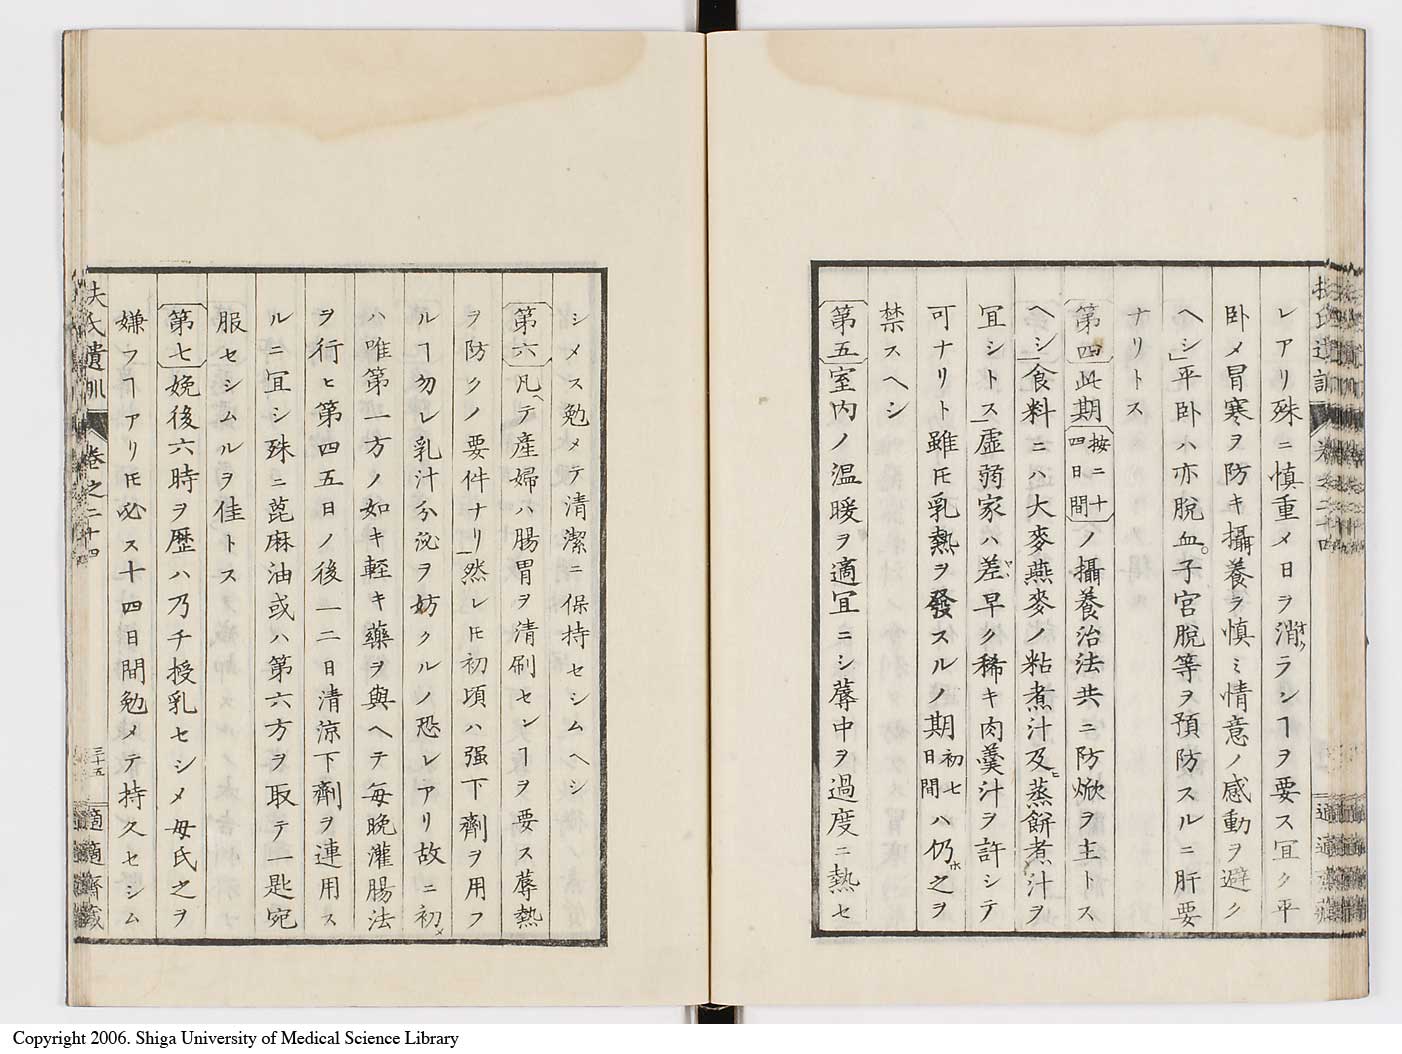 レアリ殊ニ慎重〆日ヲ消ランヿヲ要ス宜ク平
臥〆冒寒ヲ防キ攝養ヲ慎ミ情意ノ感動ヲ避ク
ヘシ」平臥ハ亦脱血。子宮脱等ヲ預防スルニ肝要
ナリトス
第四 此期 按ニ十四日間 ノ攝養治法共ニ防焮ヲ主トス
ヘシ」食料ニハ大麥燕麥ノ粘煮汁及ヒ蒸餅煮汁ヲ
宜シトス」虚弱家ハ差ヤ早ク稀キ肉羹汁ヲ許シテ
可ナリト雖𪜈乳熱ヲ發スルノ期 初七日間 ハ仍ホ之ヲ
禁スヘシ
第五 室内ノ温暖ヲ適宜ニシ蓐中ヲ過度ニ熱セ
シメス勉メテ清潔ニ保持セシムヘシ
第六 凡ヘテ産婦ハ腸胃ヲ清刷センヿヲ要ス蓐熱
ヲ防クノ要件ナリ」然レ𪜈初頃ハ强下劑ヲ用フ
ルヿ勿レ乳汁分泌ヲ妨クルノ恐レアリ故ニ初メ
ハ唯第一方ノ如キ輕キ藥ヲ與ヘテ毎晩灌腸法
ヲ行ヒ第四五日ノ後一二日清涼下劑ヲ連用ス
ルニ宜シ殊ニ蓖麻油或ハ第六方ヲ取テ一匙宛
服セシムルヲ佳トス
第七 娩後六時ヲ歴ハ乃チ授乳セシメ母氏之ヲ
嫌フヿアリ𪜈必ス十四日間勉メテ持久セシム
扶氏遺訓 卷之二十四 三十五 適適齋藏
Copyright 2006. Shiga University of Medical Science Library